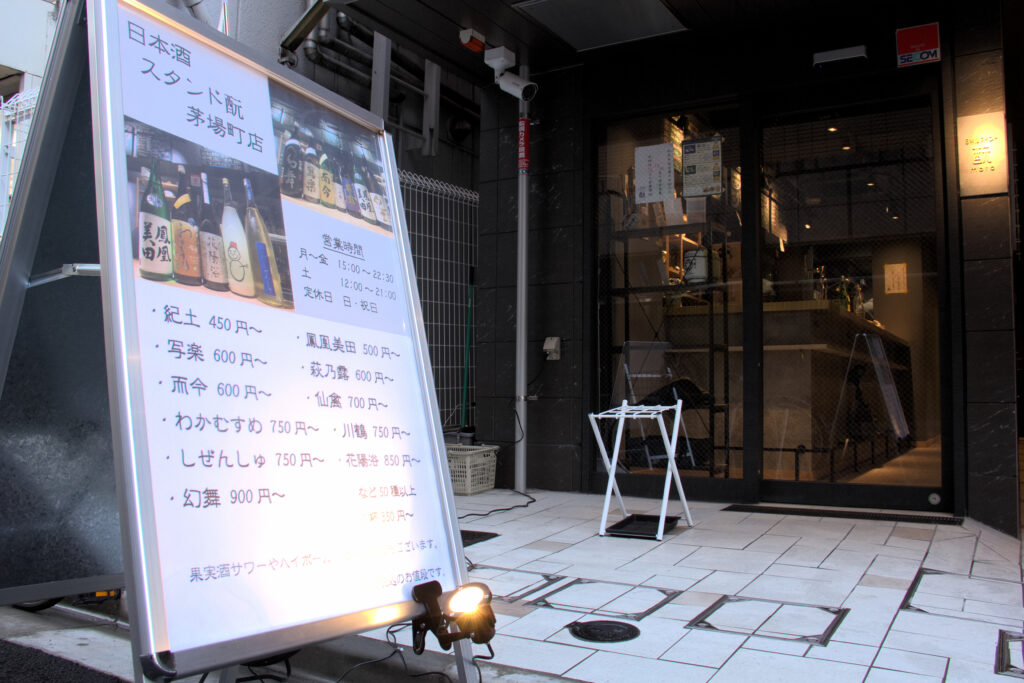 日本酒
スタンド酛
茅場町店
鳳凰
美田
花陽浴
寫楽
而今
営業時間
月〜金 15:00〜22:30
土 12:00〜21:00
定休日 日・祝日
・紀土 450円〜
・写楽 600円〜
・而今 600円〜
・わかむすめ 750円〜
・しぜんしゅ 750円〜
・幻舞 900円〜
・鳳凰美田 500円〜
・萩乃露 600円〜
・仙禽 700円〜
・川鶴 750円〜
・花陽浴 850円〜
など50種以上
350円〜
果実酒サワーやハイボー
ございます。
のお値段です。
SECOM
酛
moto